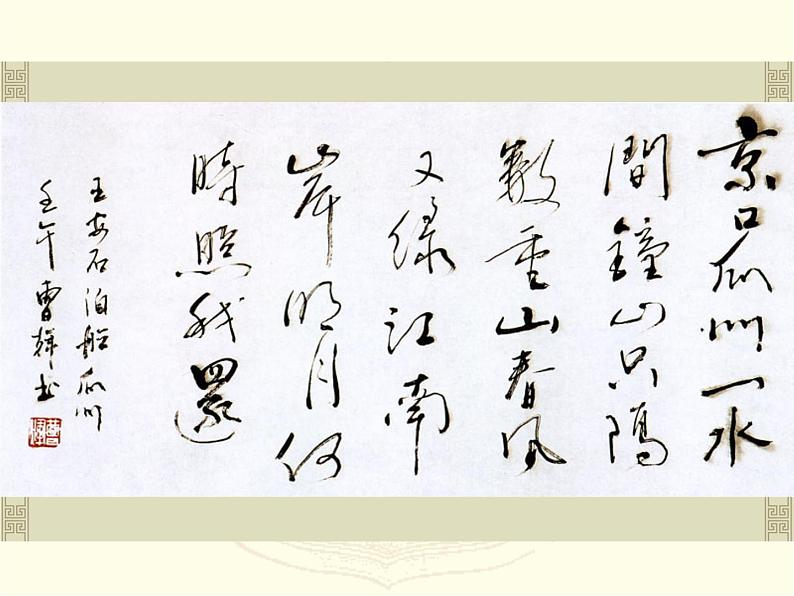 京口瓜洲一水
間鐘山只隔
數重山春風
又綠江南
岸明月何
時照我還
王安石泊船瓜洲
壬午曹辉书